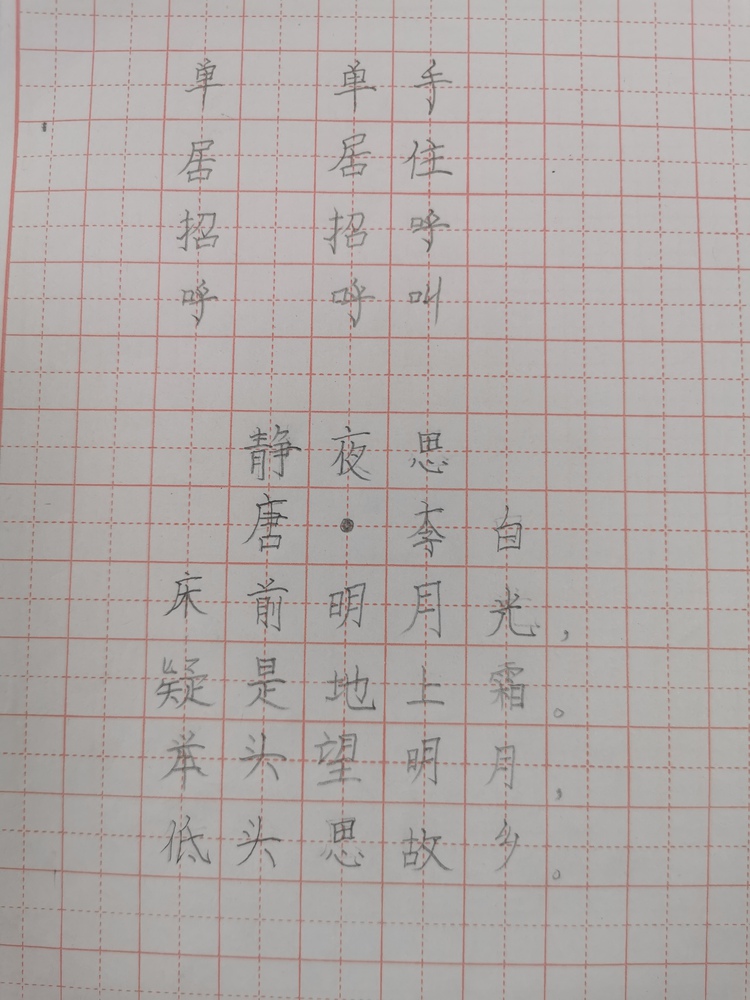 单 单 手
居 居 住
招 招 呼
呼 呼 叫
静夜思
唐·李白
床前明月光，
疑是地上霜。
举头望明月，
低头思故乡。